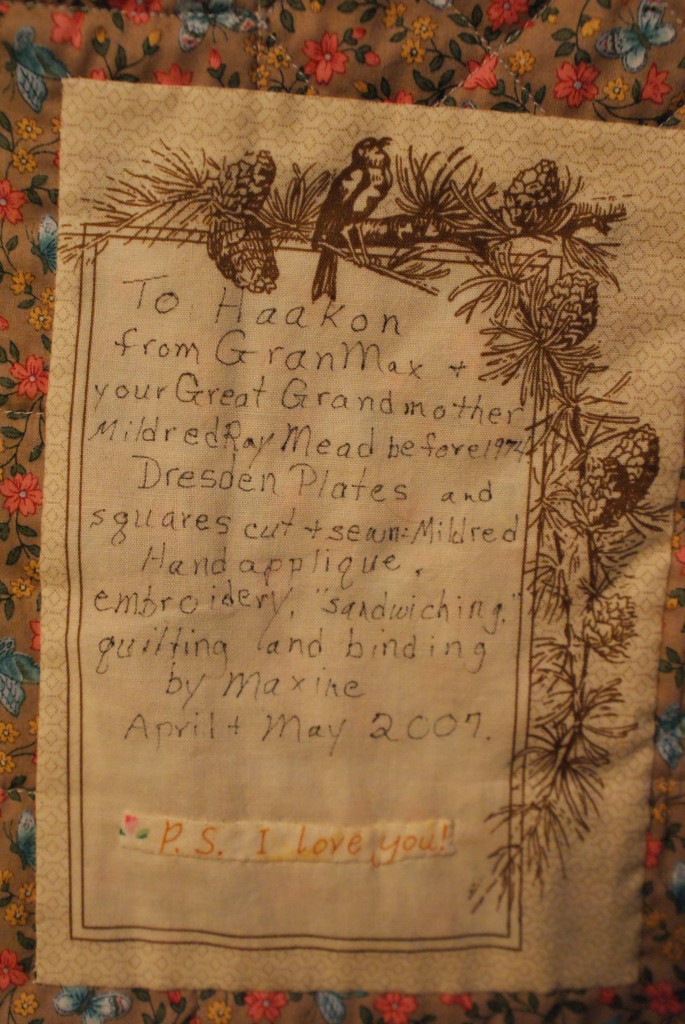 To Haakon
from GranMax +
your Great Grandmother
Mildred Ray Mead before 1974
Dresden Plates and
squares cut + sewn: Mildred
Hand applique,
embroidery, "sandwiching,"
quilting and binding
by Maxine
April + May 2007.
P.S. I love you!